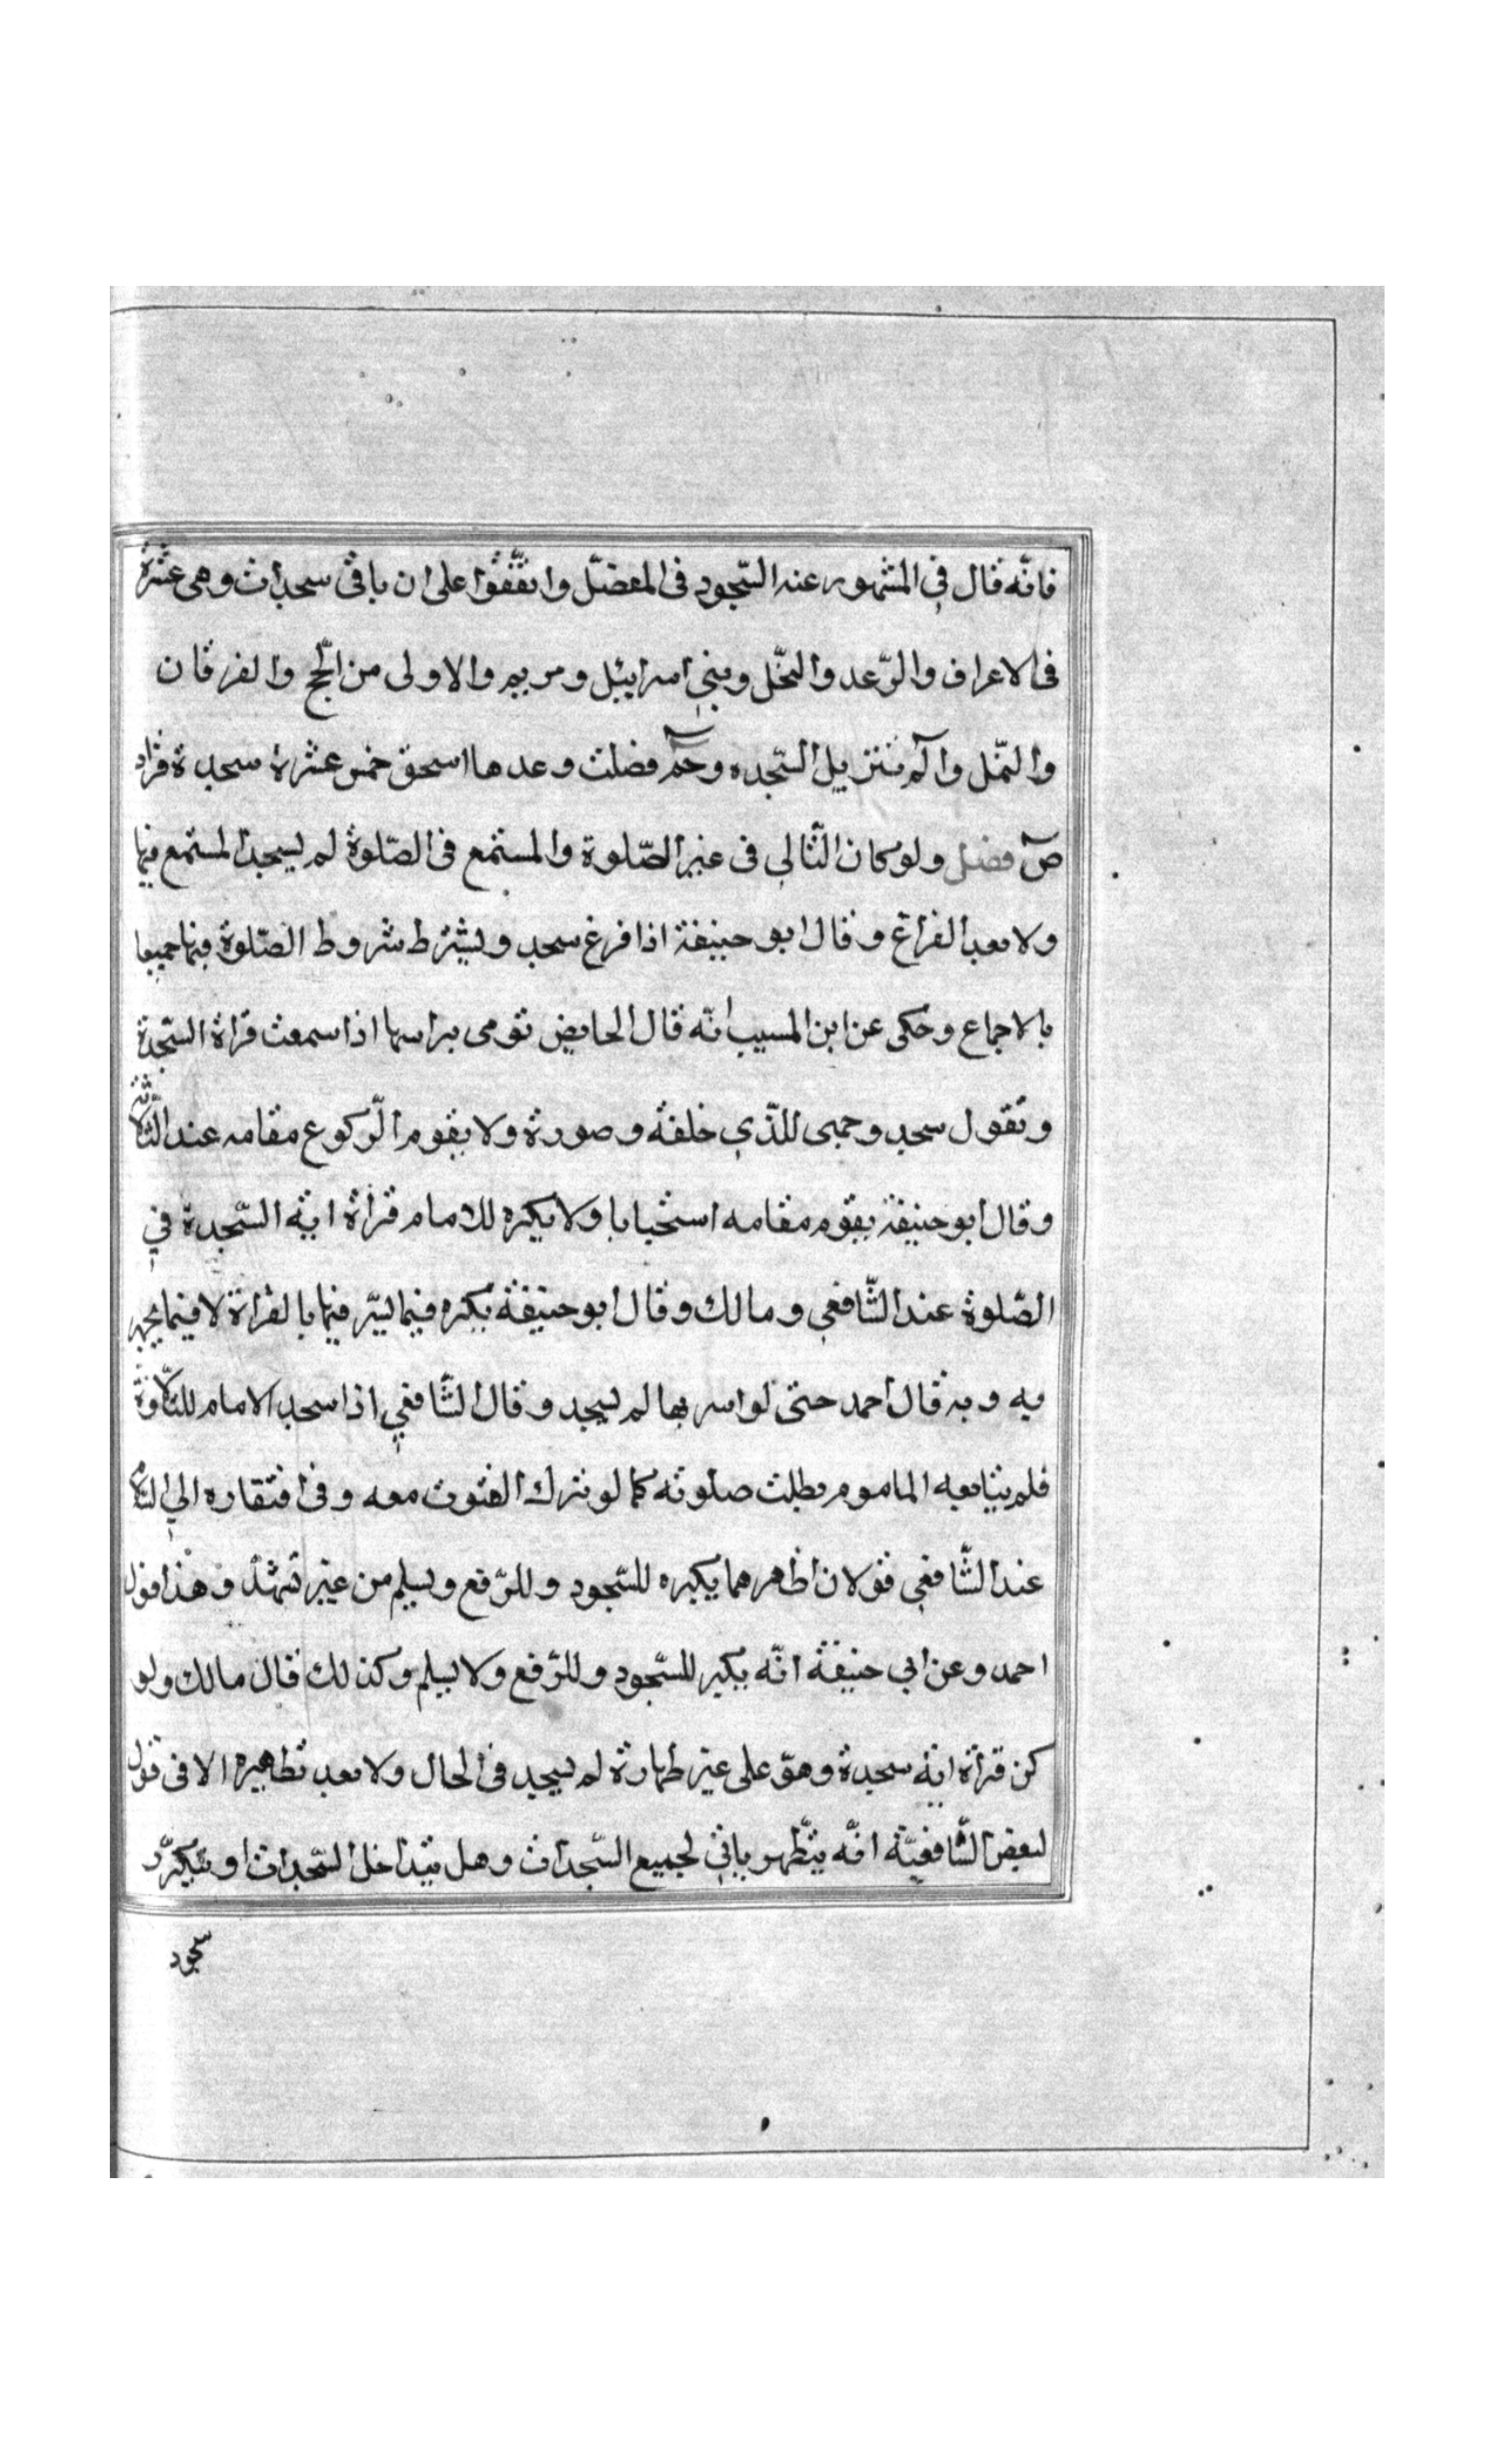 فانّه قال في المشهور عنه السّجود فى المفصّل واتفّقوا على ان باقى سجدات وهى عشرة
فى الاعراف والرّعد والنحّل وبني اسرائيل ومريم والاولى من الحّج والفرقان
والنمّل والٓم تنزيل السّجده وحٓم فصلت وعدها اسحق خمس عشرة سجدة فزاد
صٓ فصل ولو كان التّالي فى غير الصّلوة والمستمع فى الصّلوة لم يسجد المستمع فيها
ولا بعد الفراغ وقال ابو حنيفة اذا فرغ سجد ويشترط شروط الصّلوة فيها جميعا
بالاجماع وحكى عن ابن المسيب انّه قال الحايض تومى براسها اذا سمعت قراة السّجدة
وتقول سجد وجهى للذّي خلقه وصورة ولا يقوم الرّكوع مقامه عند الثّلاثة
وقال ابو حنيفة يقوم مقامه استحبابا ولا يكره للامام قراة اية السّجدة في
الصّلوة عند الشّافعي ومالك وقال ابو حنيفة يكره فيما يسّر فيها بالقراة لا فيما يجهر
به وبه قال احمد حتى لو اسر بها لم يسجد وقال الشّافعي اذا سجد الامام للتّلاوة
فلم يتابعه الماموم بطلت صلوته كما لو ترك القنوت معه وفى افتقاره الي السّلام
عند الشّافعي قولان اظهرهما يكبره للسّجود وللرّفع ويسلم من غير تشهّد وهذا قول
احمد وعن ابي حنيفة انّه يكبر للسّجود وللرّفع ولا يسلم وكذلك قال مالك ولو
كن قراة اية سجدة وهوّ على غير طهارة لم يسجد فى الحال ولا بعد تطهيره الا فى قول
لبعض الشّافعيّة انّه يتطّهر ياتي لجميع السّجدات وهل يتداخل السّجدات او يتكرّر
سجود